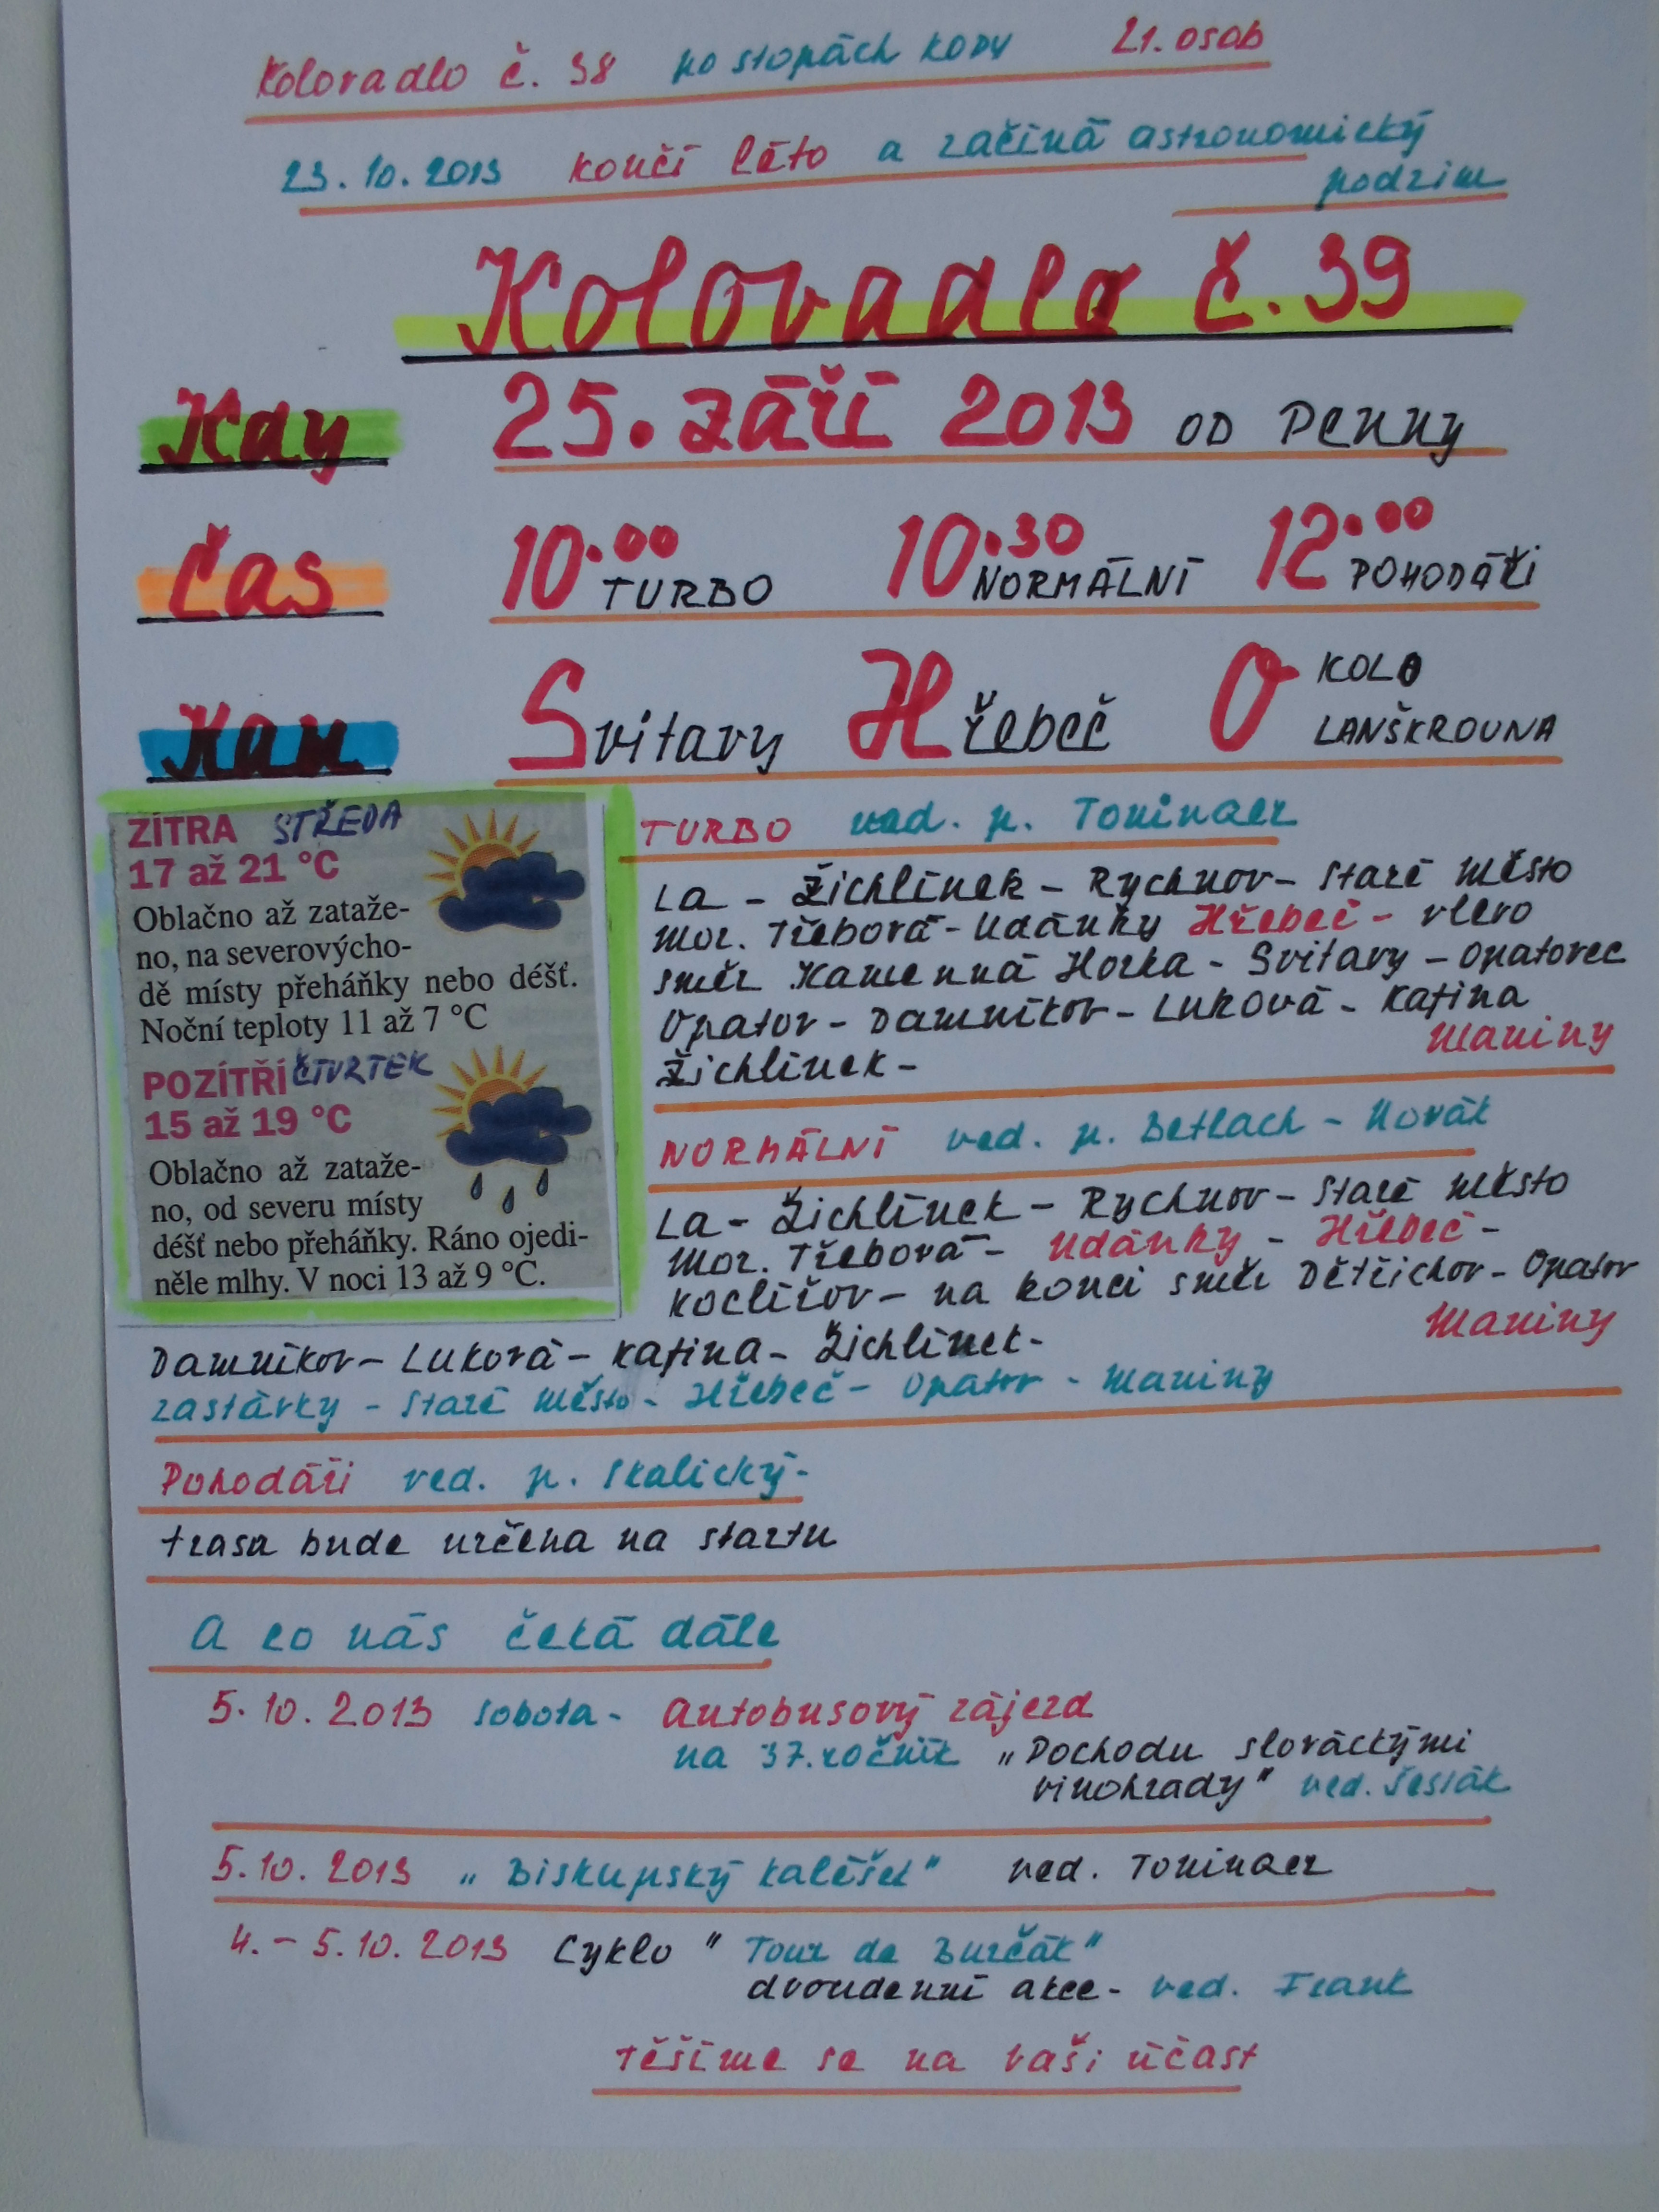 Kolovadlo č. 38 po stopách KODY 21. osob
23.10.2013 končí léto a začíná astronomický
podzim
Kolovadlo č. 39
Kdy 25. září 2013 OD Penny
Čas 10.00 TURBO 10.30 NORMÁLNÍ 12.00 POHODÁŘI
Kam Svitavy Hřebeč OKOLO
LANŠKROUNA
ZÍTRA STŘEDA
17 až 21 °C
Oblačno až zataže-
no, na severovýcho-
dě místy přeháňky nebo déšť.
Noční teploty 11 až 7 °C
POZÍTŘÍ ČTVRTEK
15 až 19 °C
Oblačno až zataže-
no, od severu místy
déšť nebo přeháňky. Ráno ojedi-
něle mlhy. V noci 13 až 9 °C.
TURBO ved. p. Toninger
La - Žichlínek - Rychnov - Staré Město
Mor. Třebová - Udánky Hřebeč - vlevo
směr Kamenná Horka - Svitavy - Opatovec
Opatov - Damníkov - Luková - Kafina
Žichlínek - Maniny
NORMÁLNÍ ved. p. Betlach - Novák
La - Žichlínek - Rychnov - Staré Město
Mor. Třebová - Udánky - Hřebeč -
Koclířov - na konci směr Dětřichov - Opatov
Damníkov - Luková - Kafina - Žichlínek - Maniny
zastávky - Staré Město - Hřebeč - Opatov - Maniny
Pohodáři ved. p. Skalický -
trasa bude určena na startu
A co nás čeká dále
5.10.2013 sobota - Autobusový zájezd
na 37. ročník „Pochodu slováckými
vinohrady" ved. Šeslák
5.10.2013 „Biskupský kalíšek" ved. Toninger
4.-5.10.2013 Cyklo "Tour de Burčák"
dvoudenní akce - ved. Frank
Těšíme se na vaši účast